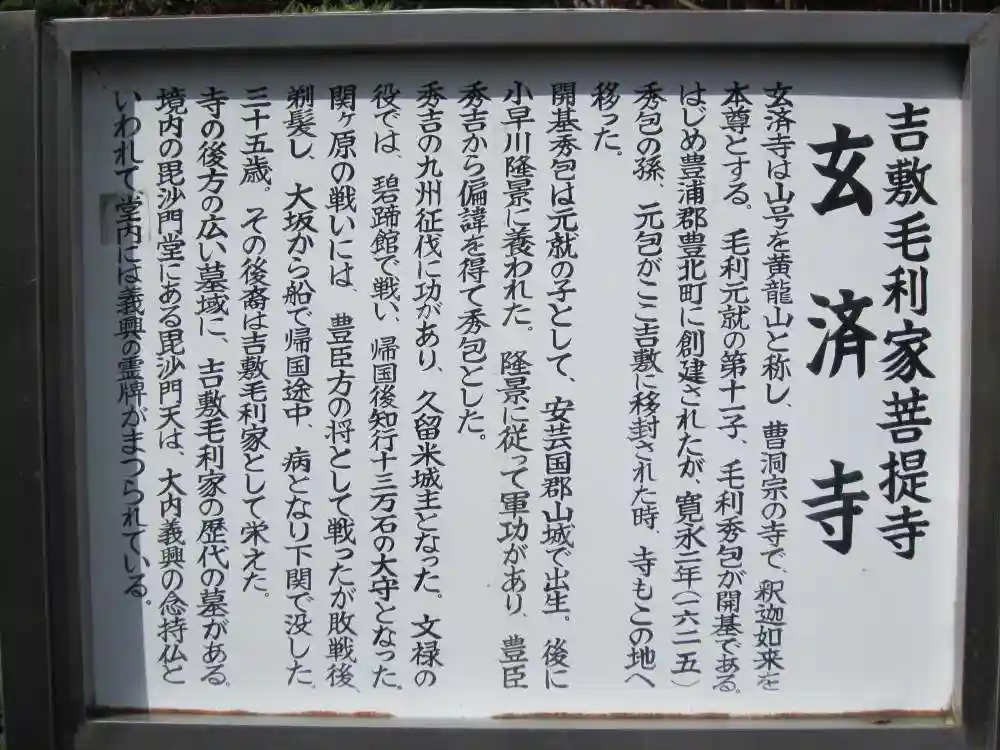 吉敷毛利家菩提寺
玄済寺
玄済寺は山号を黄龍山と称し、曹洞宗の寺で、釈迦如来を
本尊とする。毛利元就の第十一子、毛利秀包が開基である。
はじめ豊浦郡豊北町に創建されたが、寛永二年(一六二五)
秀包の孫、元包がここ吉敷に移封された時、寺もこの地へ
移った。
開基秀包は元就の子として、安芸国郡山城で出生。後に
小早川隆景に養われた。隆景に従って軍功があり、豊臣
秀吉から偏諱を得て秀包とした。
秀吉の九州征伐に功があり、久留米城主となった。文禄の
役では、碧蹄館で戦い、帰国後知行十三万石の大守となった。
関ヶ原の戦いには、豊臣方の将として戦ったが敗戦後、
剃髪し、大坂から船で帰国途中、病となり下関で没した。
三十五歳。その後裔は吉敷毛利家として栄えた。
寺の後方の広い墓域に、吉敷毛利家の歴代の墓がある。
境内の毘沙門堂にある毘沙門天は、大内義興の念持仏と
いわれて堂内には義興の霊牌がまつられている。